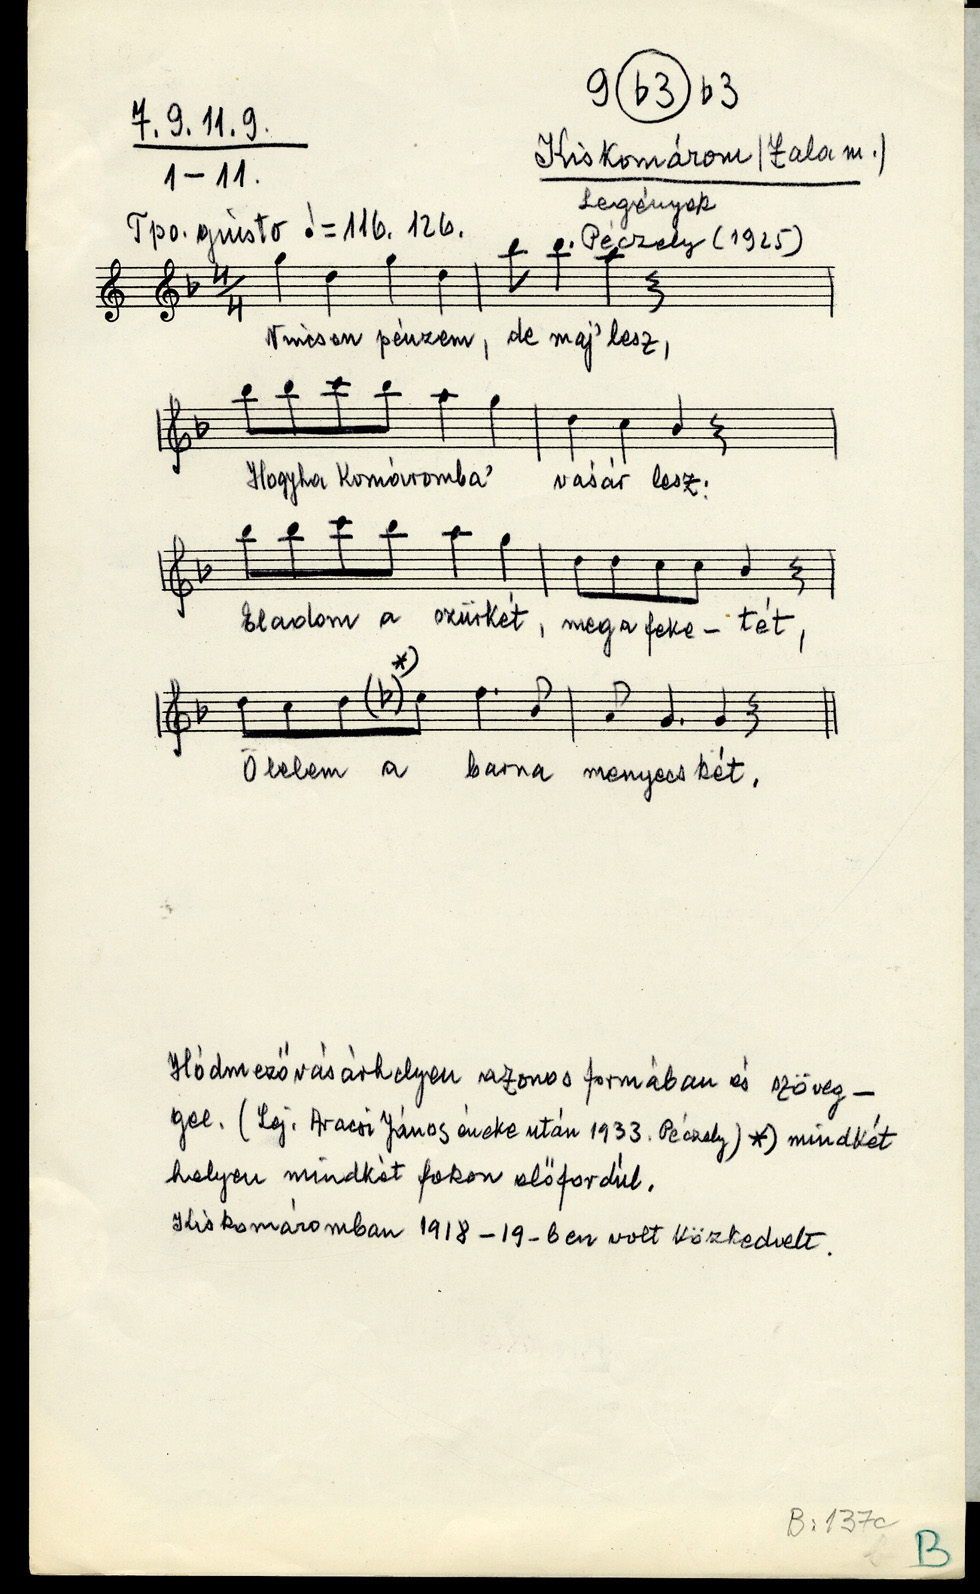 9 (b3) b3
7. 9. 11. 9.
1 – 11.
Kiskomárom (Zala m.)
Legények
Péczely (1925)
Tpo. giusto ♩ = 116. 126.
4/4
Nincsen pénzem, de maj' lesz,
Hogyha Komáromba' vásár lesz:
Eladom a szürkét, meg a feke – tét,
*)
Ölelem a barna menyecskét.
Hódmezővásárhelyen azonos formában és szöveg –
gel. (Lej. Aracsi János éneke után 1933. Péczely) *) mindkét
helyen mindkét fokon előfordúl.
Kiskomáromban 1918 – 19 – ben volt közkedvelt.
B: 137c
B